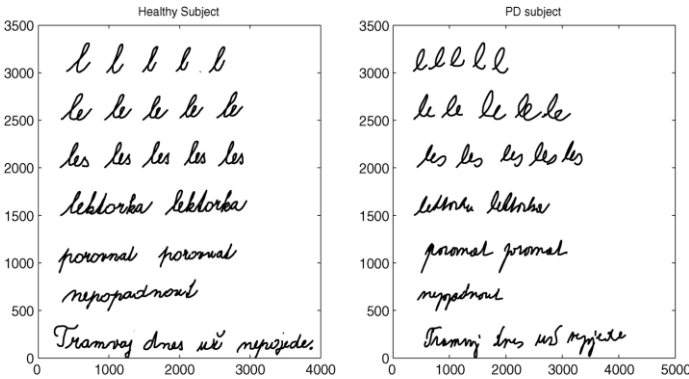 Healthy Subject
3500
3000
2500
2000
1500
1000
500
0
l l l l l
le le le le le
les les les les les
lektorka lektorka
porovnat porovnat
nepopadnout
Tramvaj dnes už nepojede.
0 1000 2000 3000 4000
PD subject
3500
3000
2500
2000
1500
1000
500
0
l l l l l
le le le le le
les les les les les
lektorka lektorka
porovnat porovnat
Tramvaj dnes už
0 1000 2000 3000 4000 5000